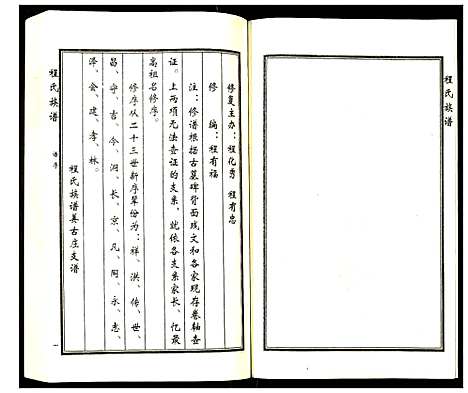 程氏族谱
修复主办：程化秀 程有忠
修 编：程有福
注：修谱根据古墓碑背面残文和各家现存卷轴查
证。上两项无法查证的支系，就依各支系家长、忆最
高祖名修序。
修序从二十三世新序辈份为：祥、洪、传、世、
昌、守、吉、今、润、长、京、凡、同、永、志、
泽、会、建、孝、林。
程氏族谱姜古庄支谱
程氏族谱
谱序
一